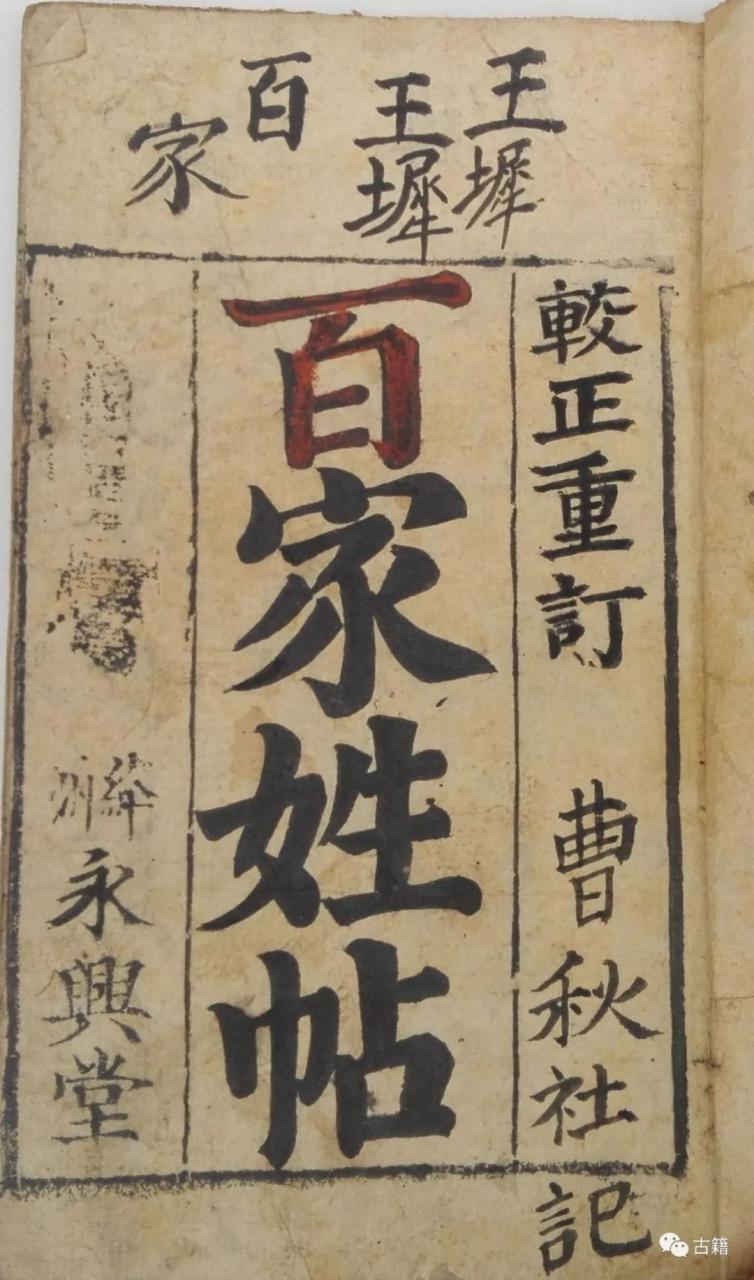 王墀
王墀
百
家
較正重訂 曹秋社記
百家姓帖
絳州永興堂
古籍